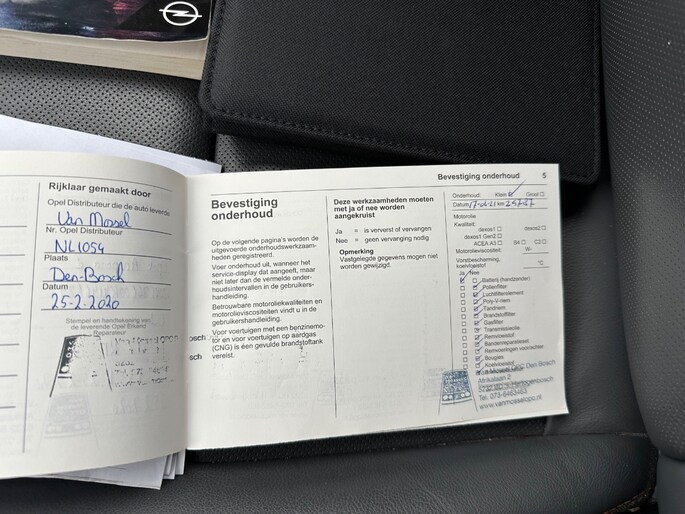 Rijklaar gemaakt door
Opel Distributeur die de auto leverde
Van Mossel
Nr. Opel Distributeur
NL1054
Plaats
Den-Bosch
Datum
25-2-2020
Stempel en handtekening van
de leverende Opel Erkend
Reparateur
Bevestiging onderhoud 5
Bevestiging
onderhoud
Op de volgende pagina's worden de
uitgevoerde onderhoudswerkzaam-
heden geregistreerd.
Voer onderhoud uit, wanneer het
service-display dat aangeeft, maar
niet later dan de vermelde onder-
houdsintervallen in de gebruikers-
handleiding.
Betrouwbare motoroliekwaliteiten en
motorolieviscositeiten vindt u in de
gebruikershandleiding.
Voor voertuigen met een benzinemo-
tor en voor voertuigen op aardgas
(CNG) is één gevulde brandstoftank
vereist.
Deze werkzaamheden moeten
met ja of nee worden
aangekruist
Ja = is ververst of vervangen
Nee = geen vervanging nodig
Opmerking
Vastgelegde gegevens mogen niet
worden gewijzigd.
Onderhoud: Klein Groot
Datum km
Motorolie
Kwaliteit:
dexos1
dexos1 Gen2 dexos2
ACEA A3 B4 C3
Motorolieviscositeit: SN
Vorstbescherming,
koelvloeistof °C
Ja Nee
Batterij (handzender)
Pollenfilter
Luchtfilterelement
Poly-V riem
Tandriem
Brandstoffilter
Gasfilter
Transmissieolie
Remvloeistof
Bandenreparatieset
Remvoeringen voor/achter
Bougies
Koelvloeistof
Van Mossel Opel Den Bosch
Afrikalaan 2
Tel. 073-6463463
www.vanmosselopc.nl